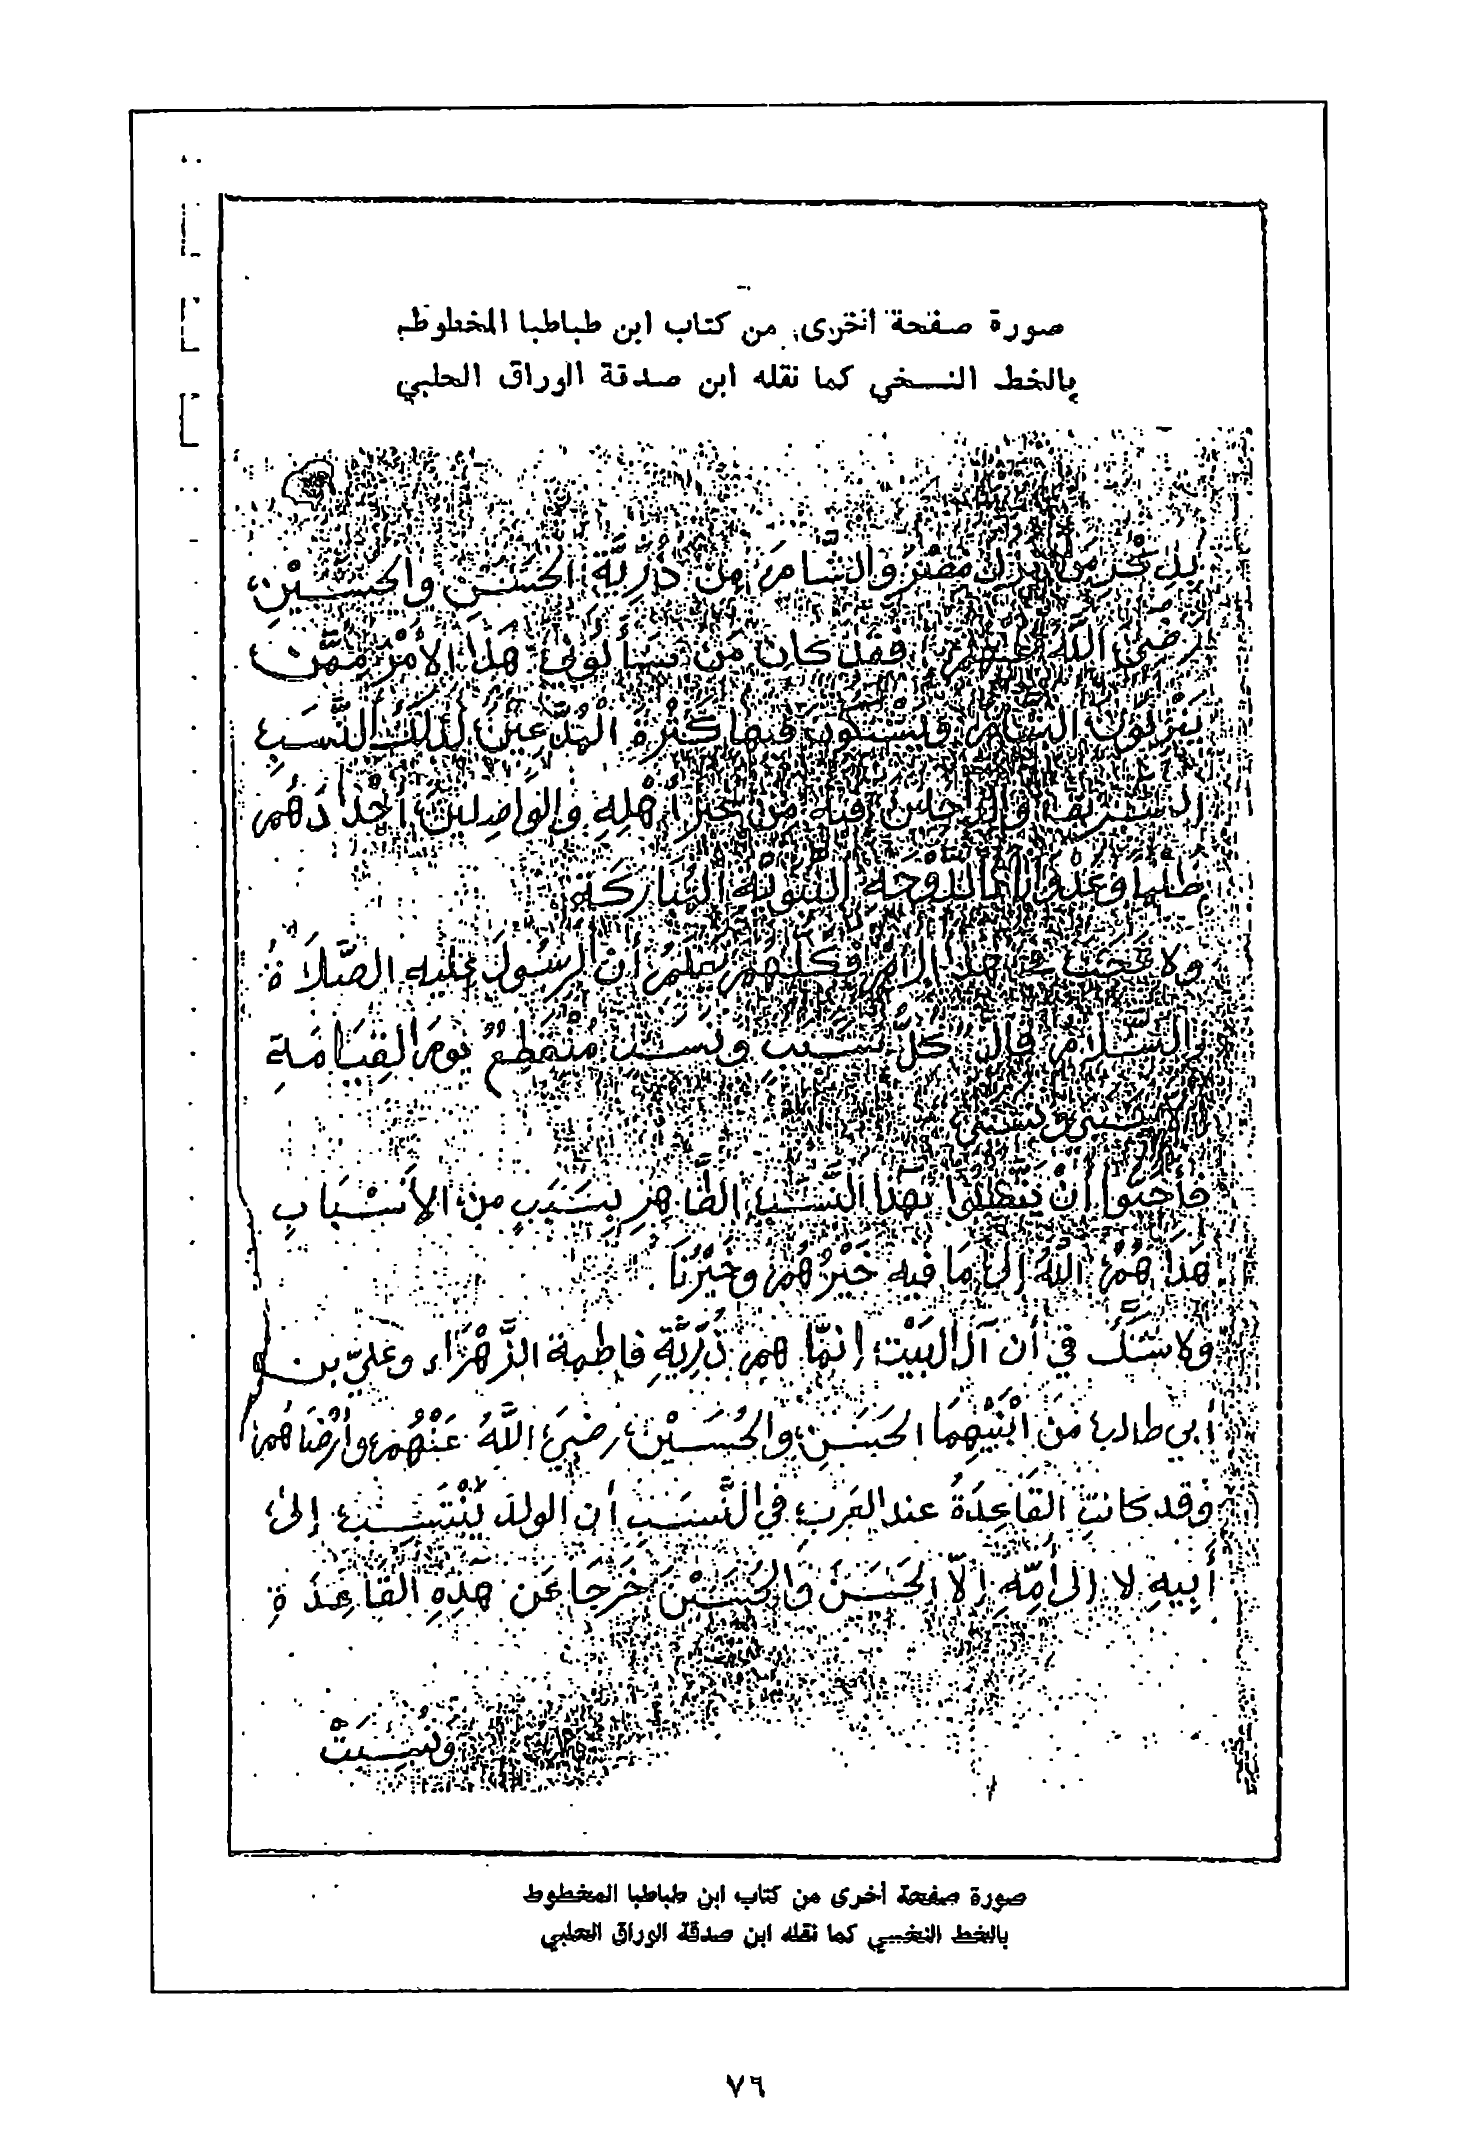 صورة صفحة أخرى من كتاب ابن طباطبا المخطوط
بالخط النسخي كما نقله ابن صدقة الوراق الحلبي
نزل مصر والشام من ذُرِّيَّة الحَسَنِ والحُسَيْنِ
رضيَ اللَّه عنهم فقد كان من هَذا الأمْر مِمَّن
ينزلون الشام ويشكون فيها كثرة المُدَّعِينَ لذلك النَّسَبِ
الشريف والداخلين فيه من غير أهْلِهِ والواصِلينَ أجْدَادَهُم
النبوية المُبَاركة
ولا عجب هذا فكلهم يعلم أن الرسُولَ عليه الصَّلَاةُ
والسَّلام قال كُلُّ سَبَبٍ ونَسَبٍ مُنْقَطِعٌ يَومَ القِيَامَةِ
إلا سببي ونسبي
فأحبّوا أنْ يتصلوا بهذا النَّسَبِ الطَّاهِرِ بسَبَبٍ من الأَسْبَابِ
هَدَاهُمُ اللَّهُ إلى مَا فيه خَيْرُهُمْ وخَيْرُنَا .
ولا شَكَّ في أن آل البَيْت إنمّا هم ذُرِّيَّةِ فاطمة الزَّهْرَاء وعليّ بن
أبي طالب مَن ابْنَيْهِمَا الحَسَنِ والحُسَيْنِ رضيَ اللَّهُ عَنْهُم وأرْضَاهُم
وقد كانت القَاعِدَةُ عند العَرَب في النَّسَب أن الولد يُنْتَسَب إلى
أَبِيهِ لا إلى أُمِّهِ إلاّ الحَسَنَ والحُسَيْنَ خَرَجَا عَن هَذِهِ القَاعِدَةِ
ونُسِبَتْ
صورة صفحة أخرى من كتاب ابن طباطبا المخطوط
بالخط النخسي كما نقله ابن صدقة الوراق الحلبي
٧٦